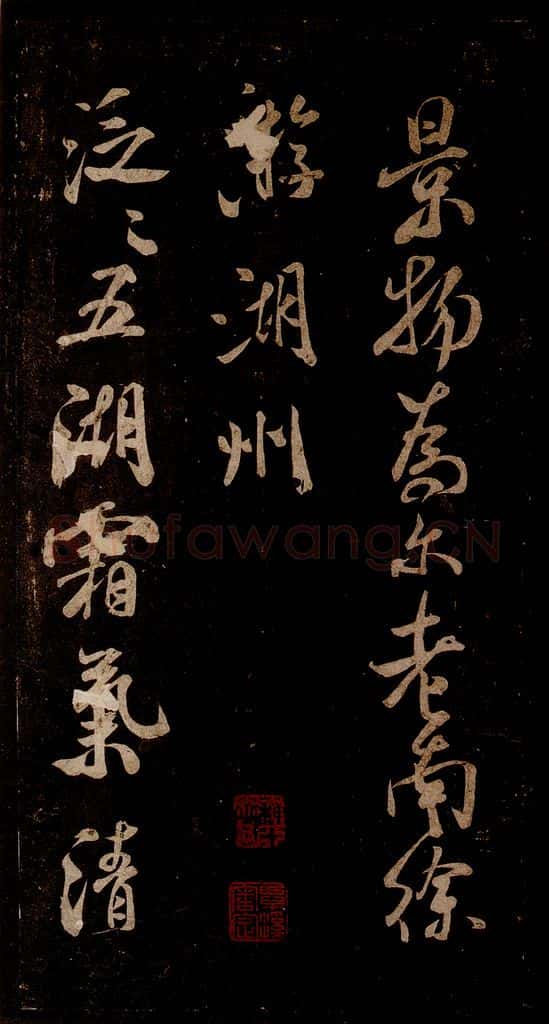 景物為尔老南徐
游湖州
泛〻五湖霜氣清
Shufawang.CN